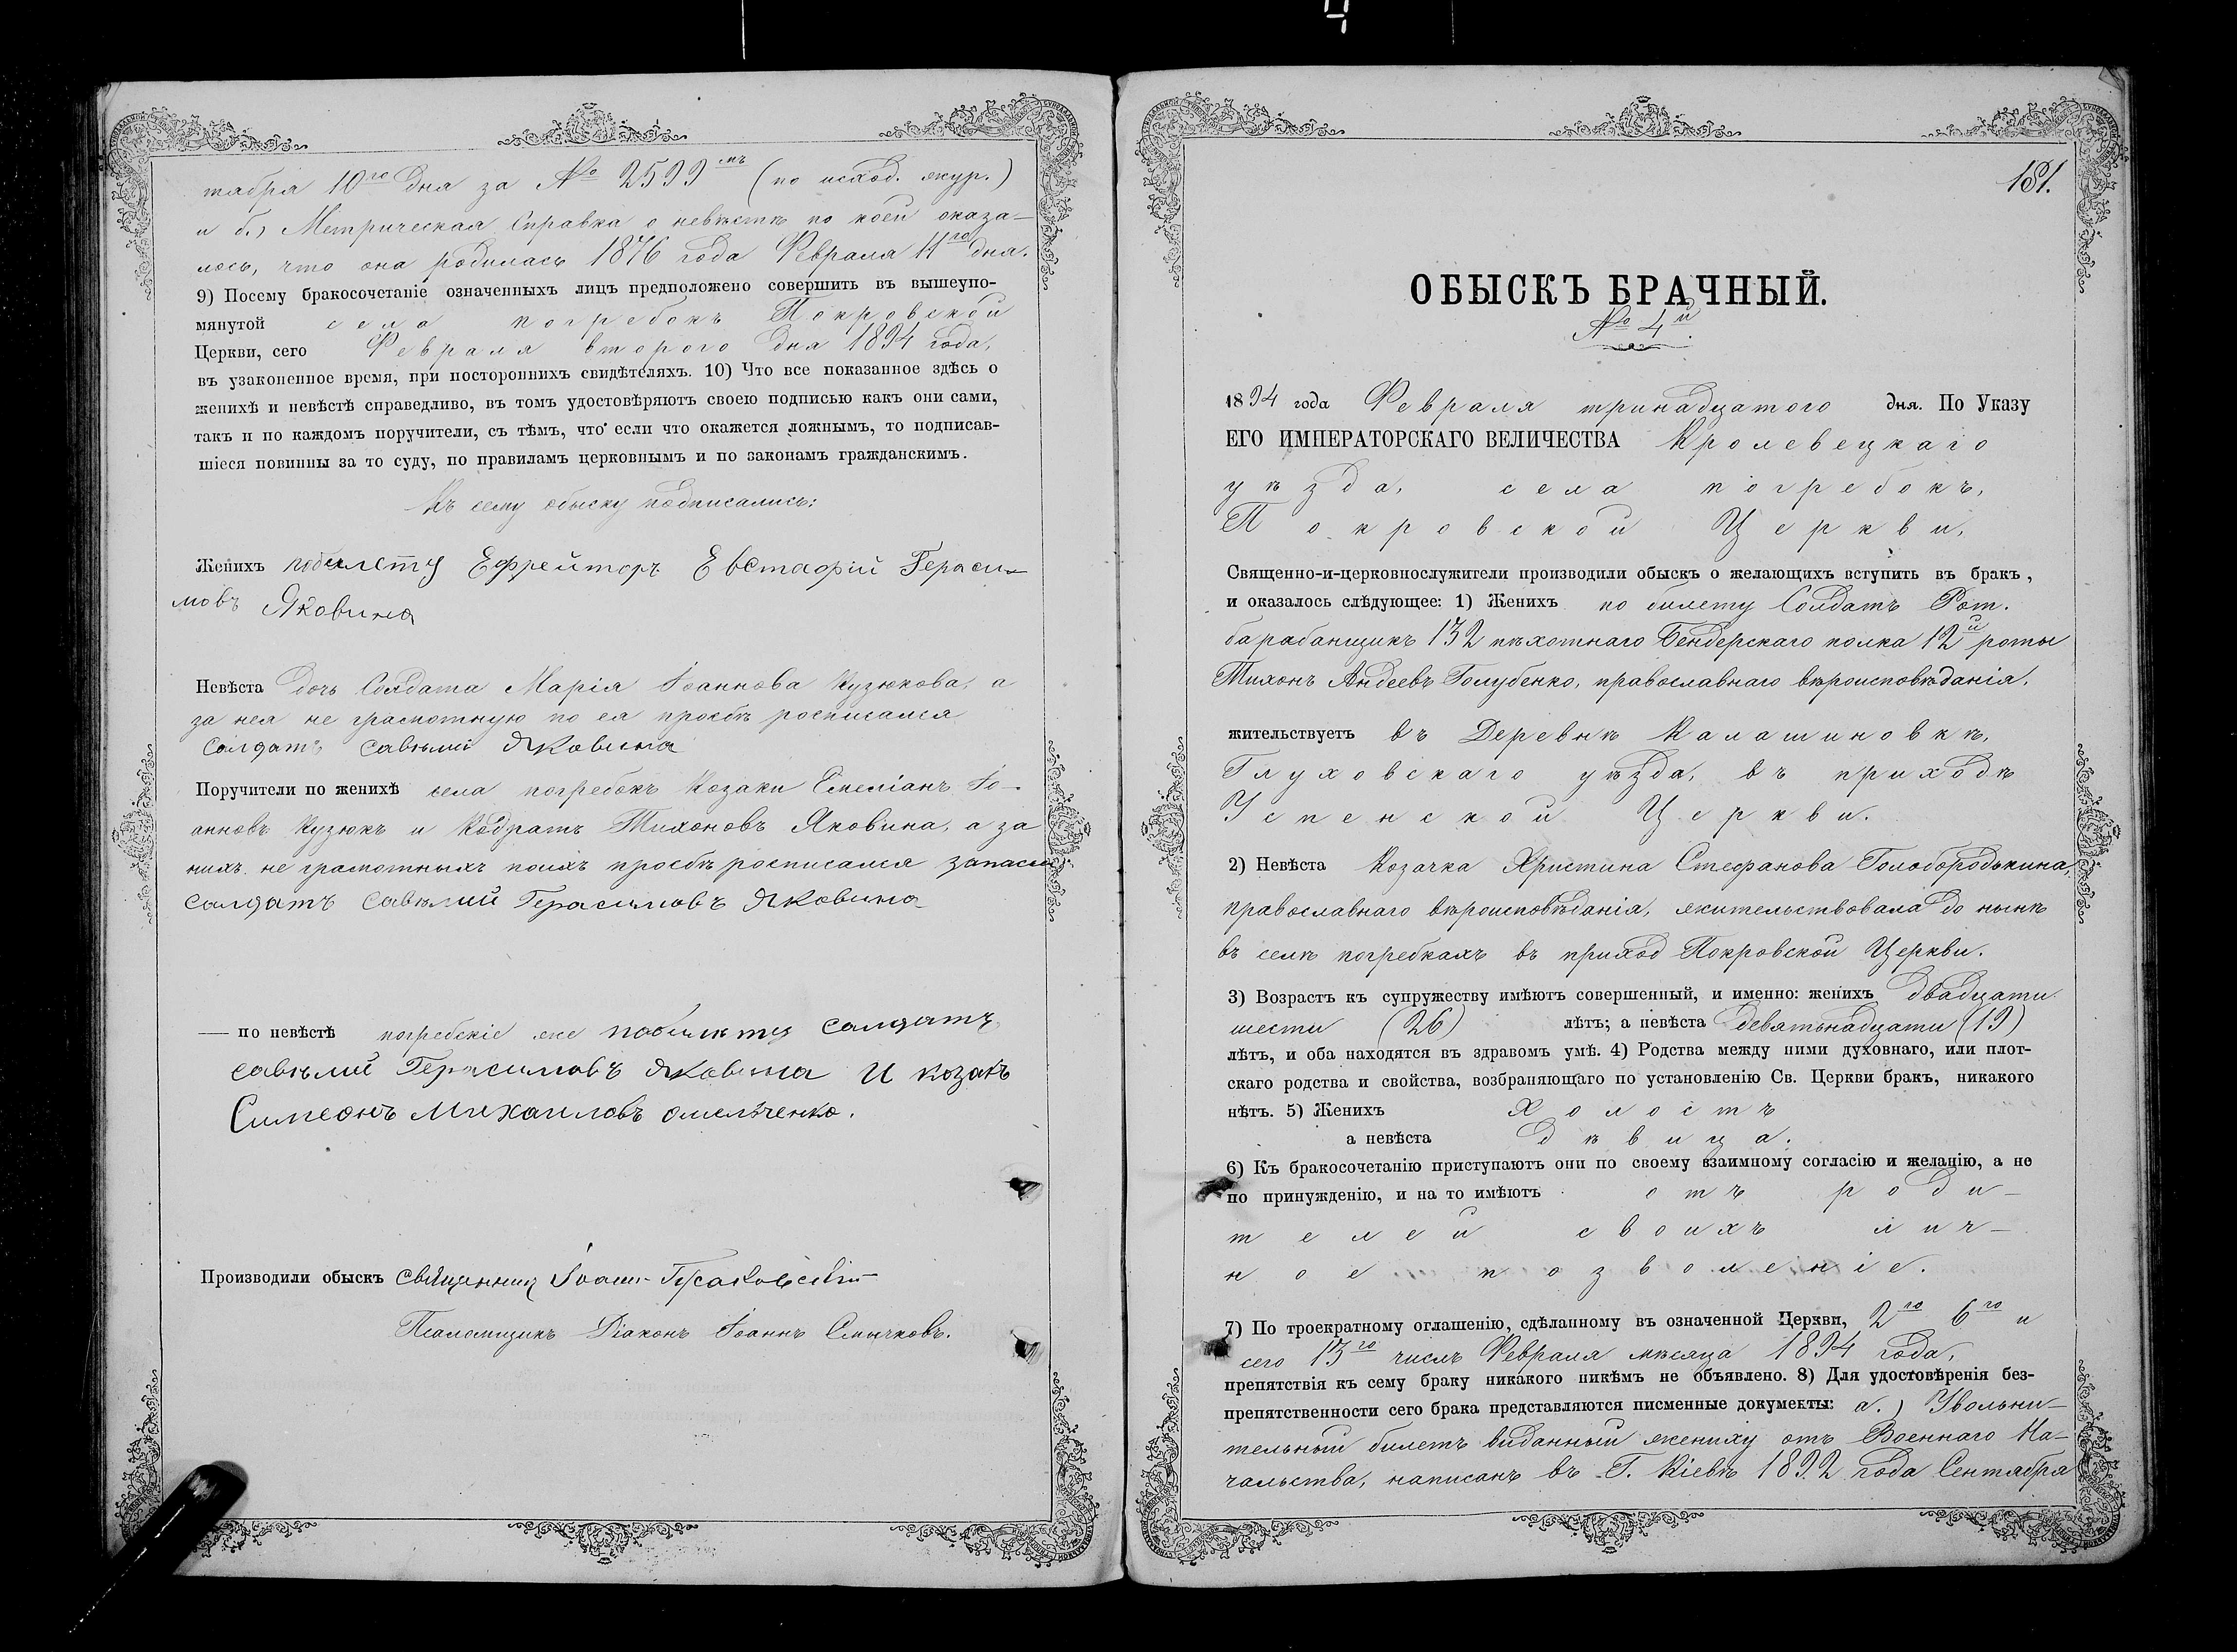 тября 10го дня за № 2599мъ (по исход. жур.)
и б.) Метрическая Справка о невѣстѣ по коей оказа-
лось, что она родилась 1876 года Февраля 11го дня.
9) Посему бракосочетаніе означенныхъ лицъ предположено совершить въ вышеупо-
мянутой села погребокъ Покровской
Церкви, сего Февраля второго дня 1894 года,
въ узаконенное время, при постороннихъ свидѣтеляхъ. 10) Что все показанное здѣсь о
женихѣ и невѣстѣ справедливо, въ томъ удостовѣряютъ своею подписью какъ они сами,
такъ и по каждомъ поручители, съ тѣмъ, что если что окажется ложнымъ, то подписав-
шіеся повинны за то суду, по правиламъ церковнымъ и по законамъ гражданскимъ.
Къ сему обыску подписались:
Женихъ побилету Ефрейторъ Евстафій Гераси-
мовъ Яковина
Невѣста дочь Солдата Марія Іоаннова Кузюкова, а
за нея не грамотную по ея просьбѣ росписался
Салдатъ Савѣлий Яковина
Поручители по женихѣ села погребокъ Козаки Емеліанъ Іо-
анновъ Кузюкъ и Кодратъ Тихоновъ Яковина, а за
нихъ не грамотныхъ поихъ просьбѣ росписался запасный
Салдатъ Савѣлий Герасимовъ Яковина
— по невѣстѣ погребскіе же побилѣту Салдатъ
Савѣлий Герасимовъ Яковина и козакъ
Симеонъ Михаиловъ Омельченко.
Производили обыскъ Священникъ Іоаннъ
Псаломщикъ Діаконъ Іоаннъ Смычковъ.
181.
ОБЫСКЪ БРАЧНЫЙ.
№ 4й
1894 года Февраля тринадцатого дня. По Указу
ЕГО ИМПЕРАТОРСКАГО ВЕЛИЧЕСТВА Кролевецкаго
уѣзда, села погребокъ,
Покровской Церкви,
Священно-и-церковнослужители производили обыскъ о желающихъ вступить въ бракъ,
и оказалось слѣдующее: 1) Женихъ по билету Солдатъ Рот.
барабанщикъ 132 пѣхотнаго Бендерскаго полка 12й роты
Тихонъ Андеевъ Голубенко, православнаго вѣроисповѣданія,
жительствуетъ въ Деревнѣ Калашиновкѣ,
Глуховскаго уѣзда, въ приходѣ
Успенской Церкви.
2) Невѣста Козачка Христина Стефанова Голобородькина,
православнаго вѣроисповѣданія, жительствовала до нынѣ
въ селѣ погребкахъ въ приход Покровской Церкви.
3) Возрастъ къ супружеству имѣютъ совершенный, и именно: женихъ двадцати
шести (26) лѣтъ; а невѣста девятьнадцати (19)
лѣтъ, и оба находятся въ здравомъ умѣ. 4) Родства между ними духовнаго, или плот-
скаго родства и свойства, возбраняющаго по установленію Св. Церкви бракъ, никакого
нѣтъ. 5) Женихъ Холостъ
а невѣста дѣвица.
6) Къ бракосочетанію приступаютъ они по своему взаимному согласію и желанію, а не
по принужденію, и на то имѣютъ отъ роди-
телей своихъ лич-
ное позволеніе.
7) По троекратному оглашенію, сдѣланному въ означенной Церкви, 2го 6го и
сего 13го числъ Февраля мѣсяца 1894 года,
препятствія къ сему браку никакого никѣмъ не объявлено. 8) Для удостовѣренія без-
препятственности сего брака представляются писменные документы: а.) Увольни-
тельный билетъ виданный жениху отъ Военнаго На-
чальства, написанъ въ Г. Кіевѣ 1892 года Сентября